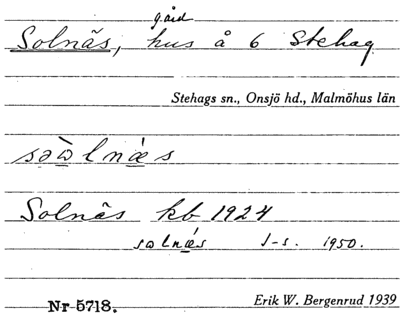 gård
Solnäs, hus å 6 Stehag
Stehags sn., Onsjö hd., Malmöhus län
Solnäs kb 1924
1950.
Nr 5718. Erik W. Bergenrud 1939